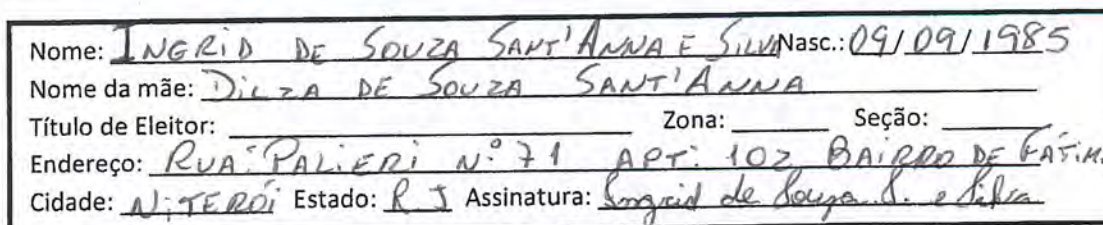 Nome: INGRID DE SOUZA SANT'ANNA E SILVA Nasc.: 09/09/1985
Nome da mãe: DILZA DE SOUZA SANT'ANNA
Título de Eleitor: Zona: Seção:
Endereço: RUA: PALIERI Nº 71 APT: 102 BAIRRO DE FÁTIMA
Cidade: NITERÓI Estado: RJ Assinatura: Ingrid de Souza S. e Silva